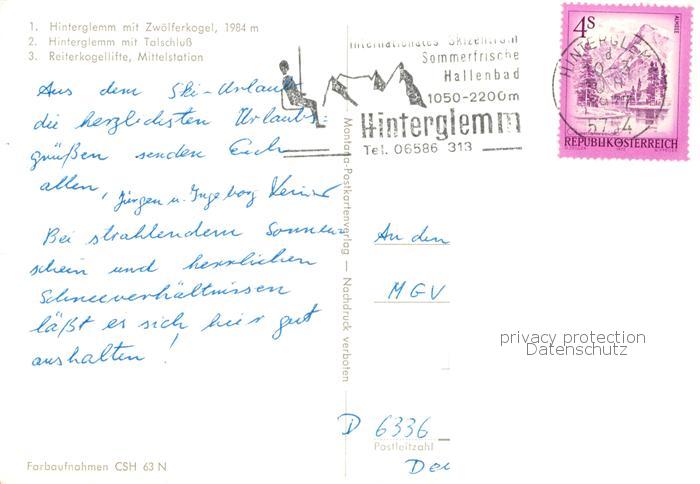 1. Hinterglemm mit Zwölferkogel, 1984 m
2. Hinterglemm mit Talschluß
3. Reiterkogellifte, Mittelstation
Aus dem Ski-Urlaub
die herzlichsten Urlaubs-
grüßen senden Euch
allen, Jürgen u. Ingeborg
Bei strahlendem Sonnen-
schein und herrlichen
Schneeverhältnissen
läßt es sich hier gut
aushalten!
Farbaufnahmen CSH 63 N
Montana-Postkartenverlag — Nachdruck verboten
Internationales Skizentrum
Sommerfrische
Hallenbad
1050-2200m
Hinterglemm
Tel. 06586 313
HINTERGLEMM
5754
ALMSEE
4S
REPUBLIK ÖSTERREICH
An den
MGV
privacy protection
Datenschutz
D 6336
Postleitzahl